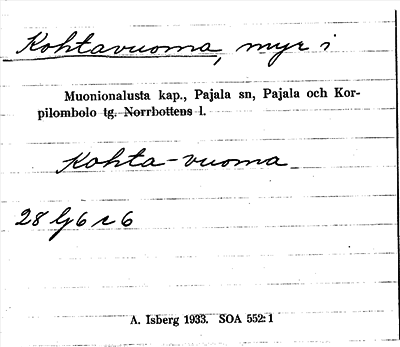 Kohtavuoma, myr i
Muonionalusta kap., Pajala sn, Pajala och Kor-
pilombolo tg. Norrbottens l.
Kohta-vuoma
28 lj 6 r 6
A. Isberg 1933. SOA 552:1